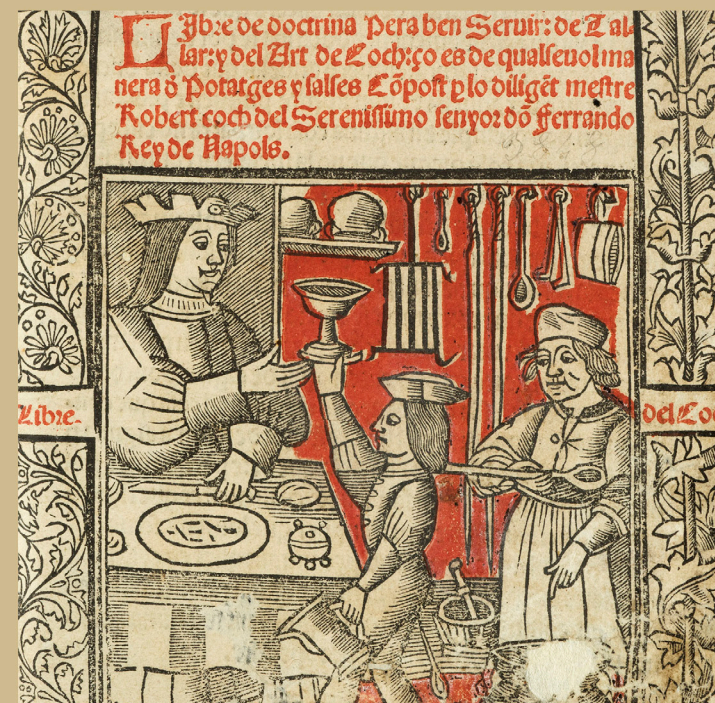 Libre de doctrina Pera ben Seruir: de Tal-
lar: y del Art de Coch: ço es de qualseuol ma
nera d̄ Potatges y salses Cōpost ꝑ lo diligēt mestre
Robert coch del Serenissimo senyor dō Ferrando
Rey de Napols.
Libre.
del Co